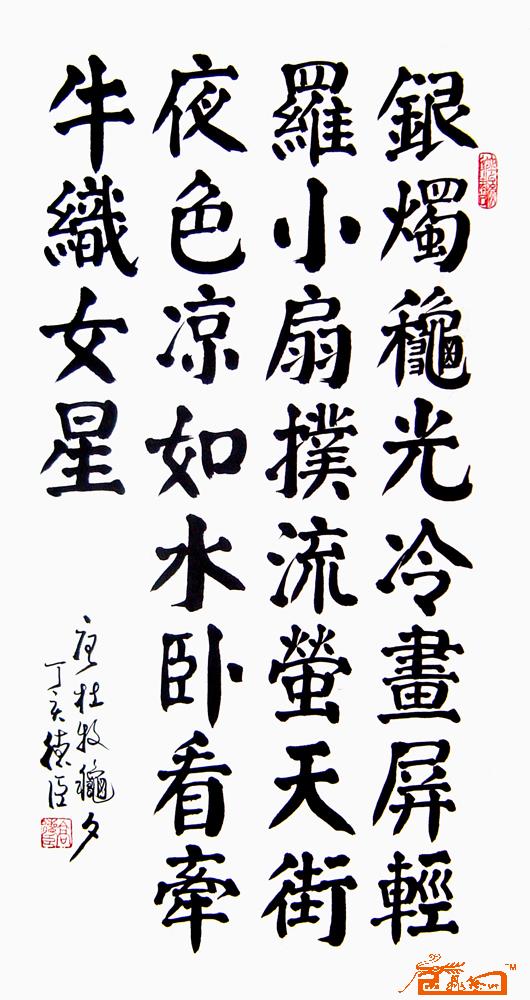 銀燭龝光冷畫屏輕
羅小扇撲流螢天街
夜色凉如水卧看牽
牛織女星
唐杜牧龝夕
丁亥德臣